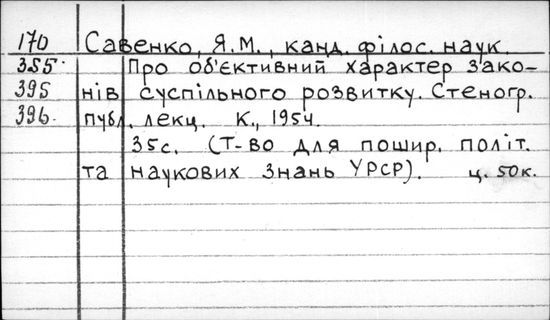 170 Савенко, Я.М., канд. філос. наук.
355. Про об'єктивний характер зако-
395 нів суспільного розвитку. Стеногр.
396. публ. лекц. К., 1954.
35с. (Т-во для пошир. політ.
та наукових знань УРСР). ц. 50к.